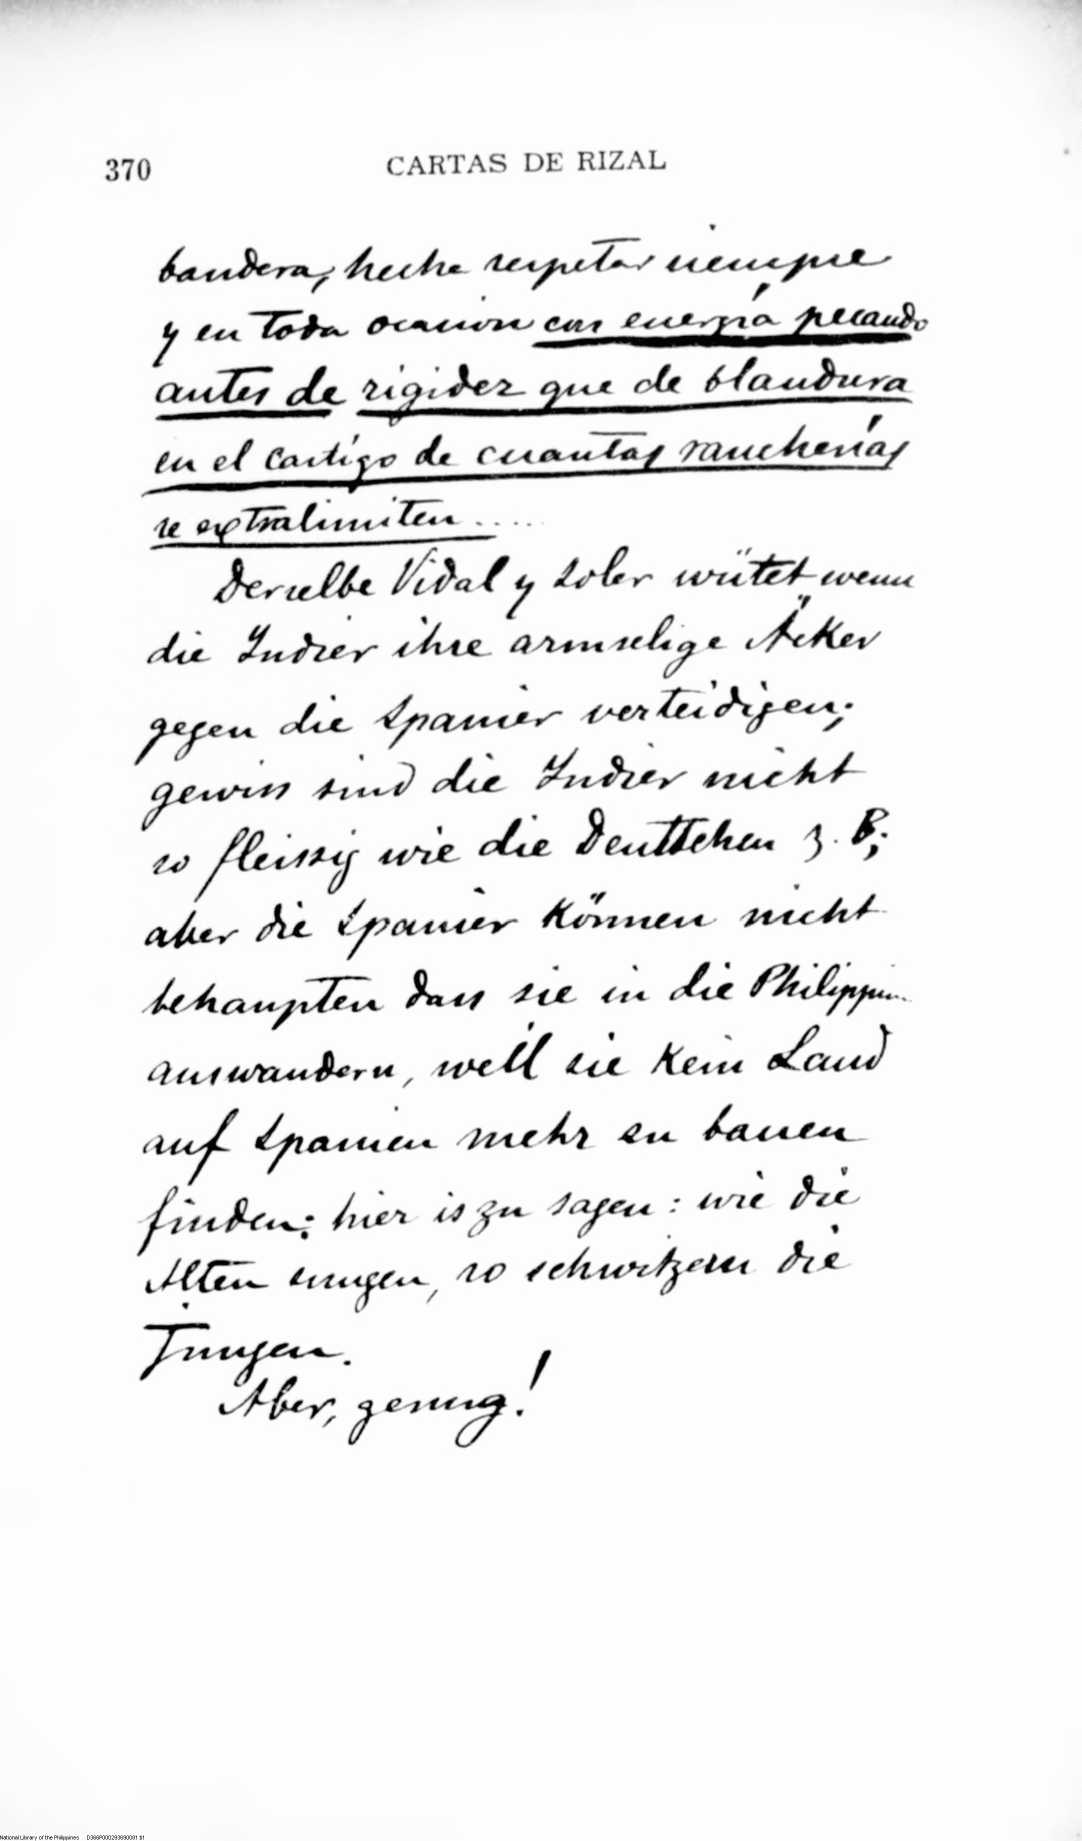 370 CARTAS DE RIZAL
bandera, hecha respetar siempre
y en toda ocasion con energía pecando
antes de rigidez que de blandura
en el castigo de cuantas rancherías
se extralimiten.....
Derselbe Vidal y Soler wütet wenn
die Indier ihre armselige Äcker
gegen die Spanier verteidigen;
gewiss sind die Indier nicht
so fleissig wie die Deuttchen z. B;
aber die Spanier können nicht
behaupten dass sie in die Philippin..
auswandern, weil sie kein Land
auf Spanien mehr zu bauen
finden; hier is zu sagen: wie die
Alten sungen, so schwitzern die
Jungen.
Aber, genug!
National Library of the Philippines